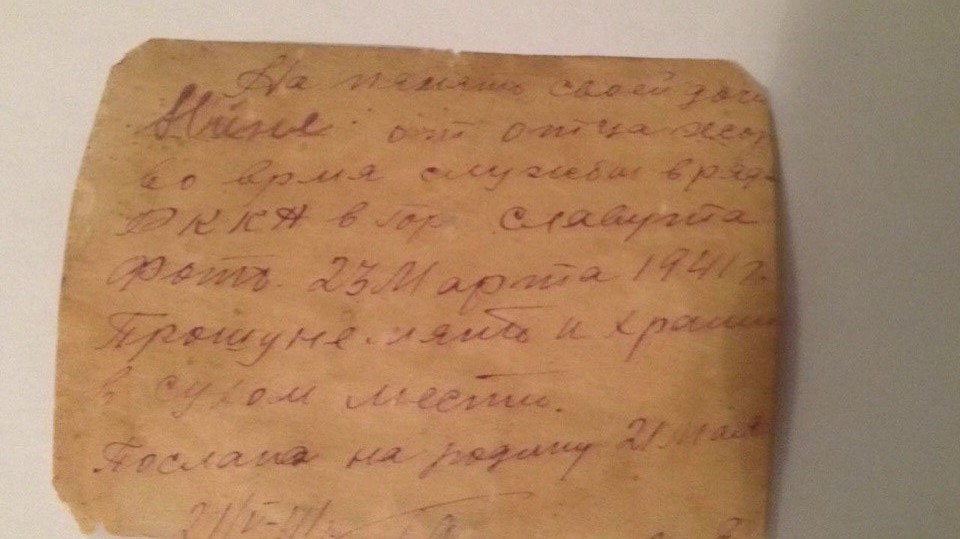 На память своей доч
Нине от отца
во врмя службы в ряд
РККА в гор Славута
Фото. 23 Марта 1941 г.
Прошу не мять и храни
в сухом месте.
Послана на родину 21 Мая
21/V-41г